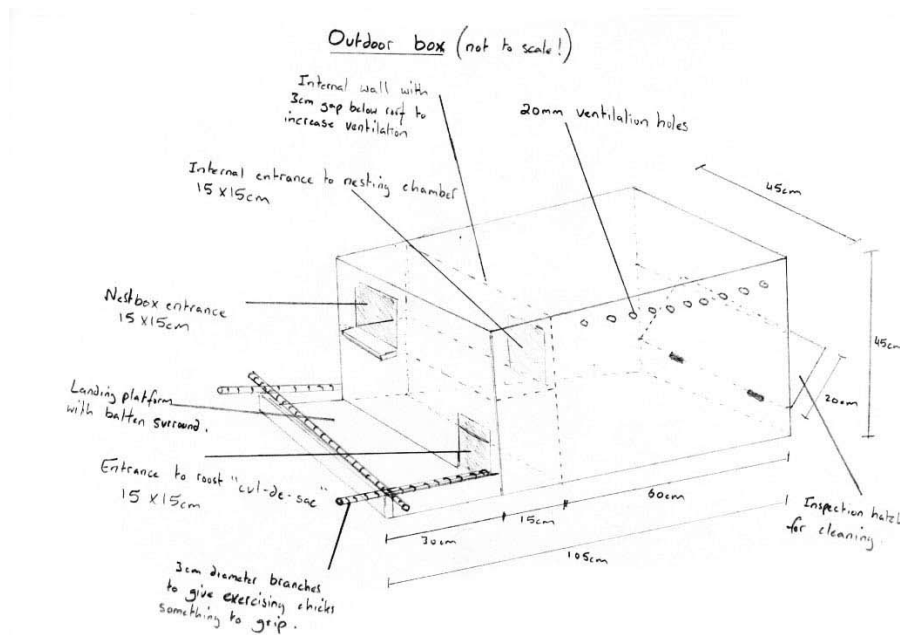 Outdoor box (not to scale!)
Internal wall with
3cm gap below roof to
increase ventilation
20mm ventilation holes
Internal entrance to nesting chamber
15 x 15cm
45cm
Nestbox entrance
15 x 15cm
45cm
20cm
Landing platform
with batten surround.
Entrance to roost "cul-de-sac"
15 x 15cm
60cm
15cm
30cm
105cm
Inspection hatch
for cleaning.
3cm diameter branches
to give exercising chicks
something to grip.